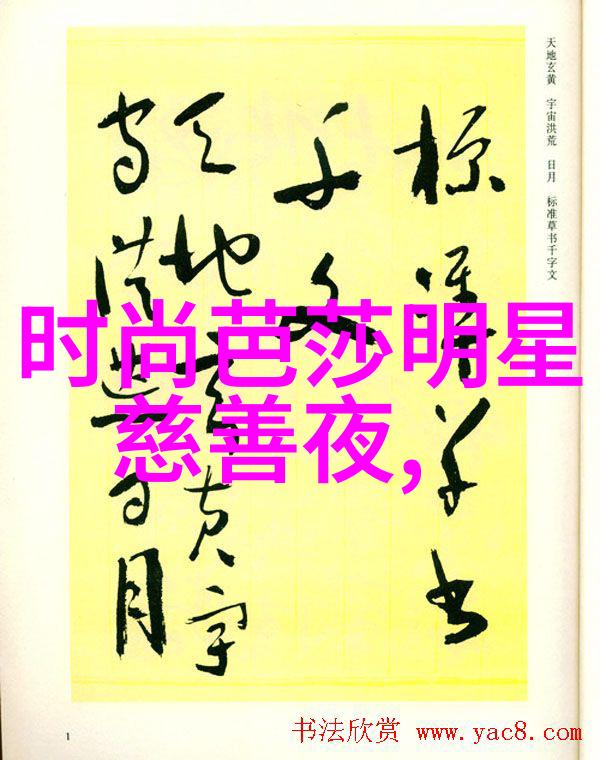 天地玄黄 宇宙洪荒 日月 标准草书千字文
标准草书
千文
天地玄黄宇
宙洪荒日月
时尚芭莎明星
慈善夜,
1
书法欣赏 www.yac8.com